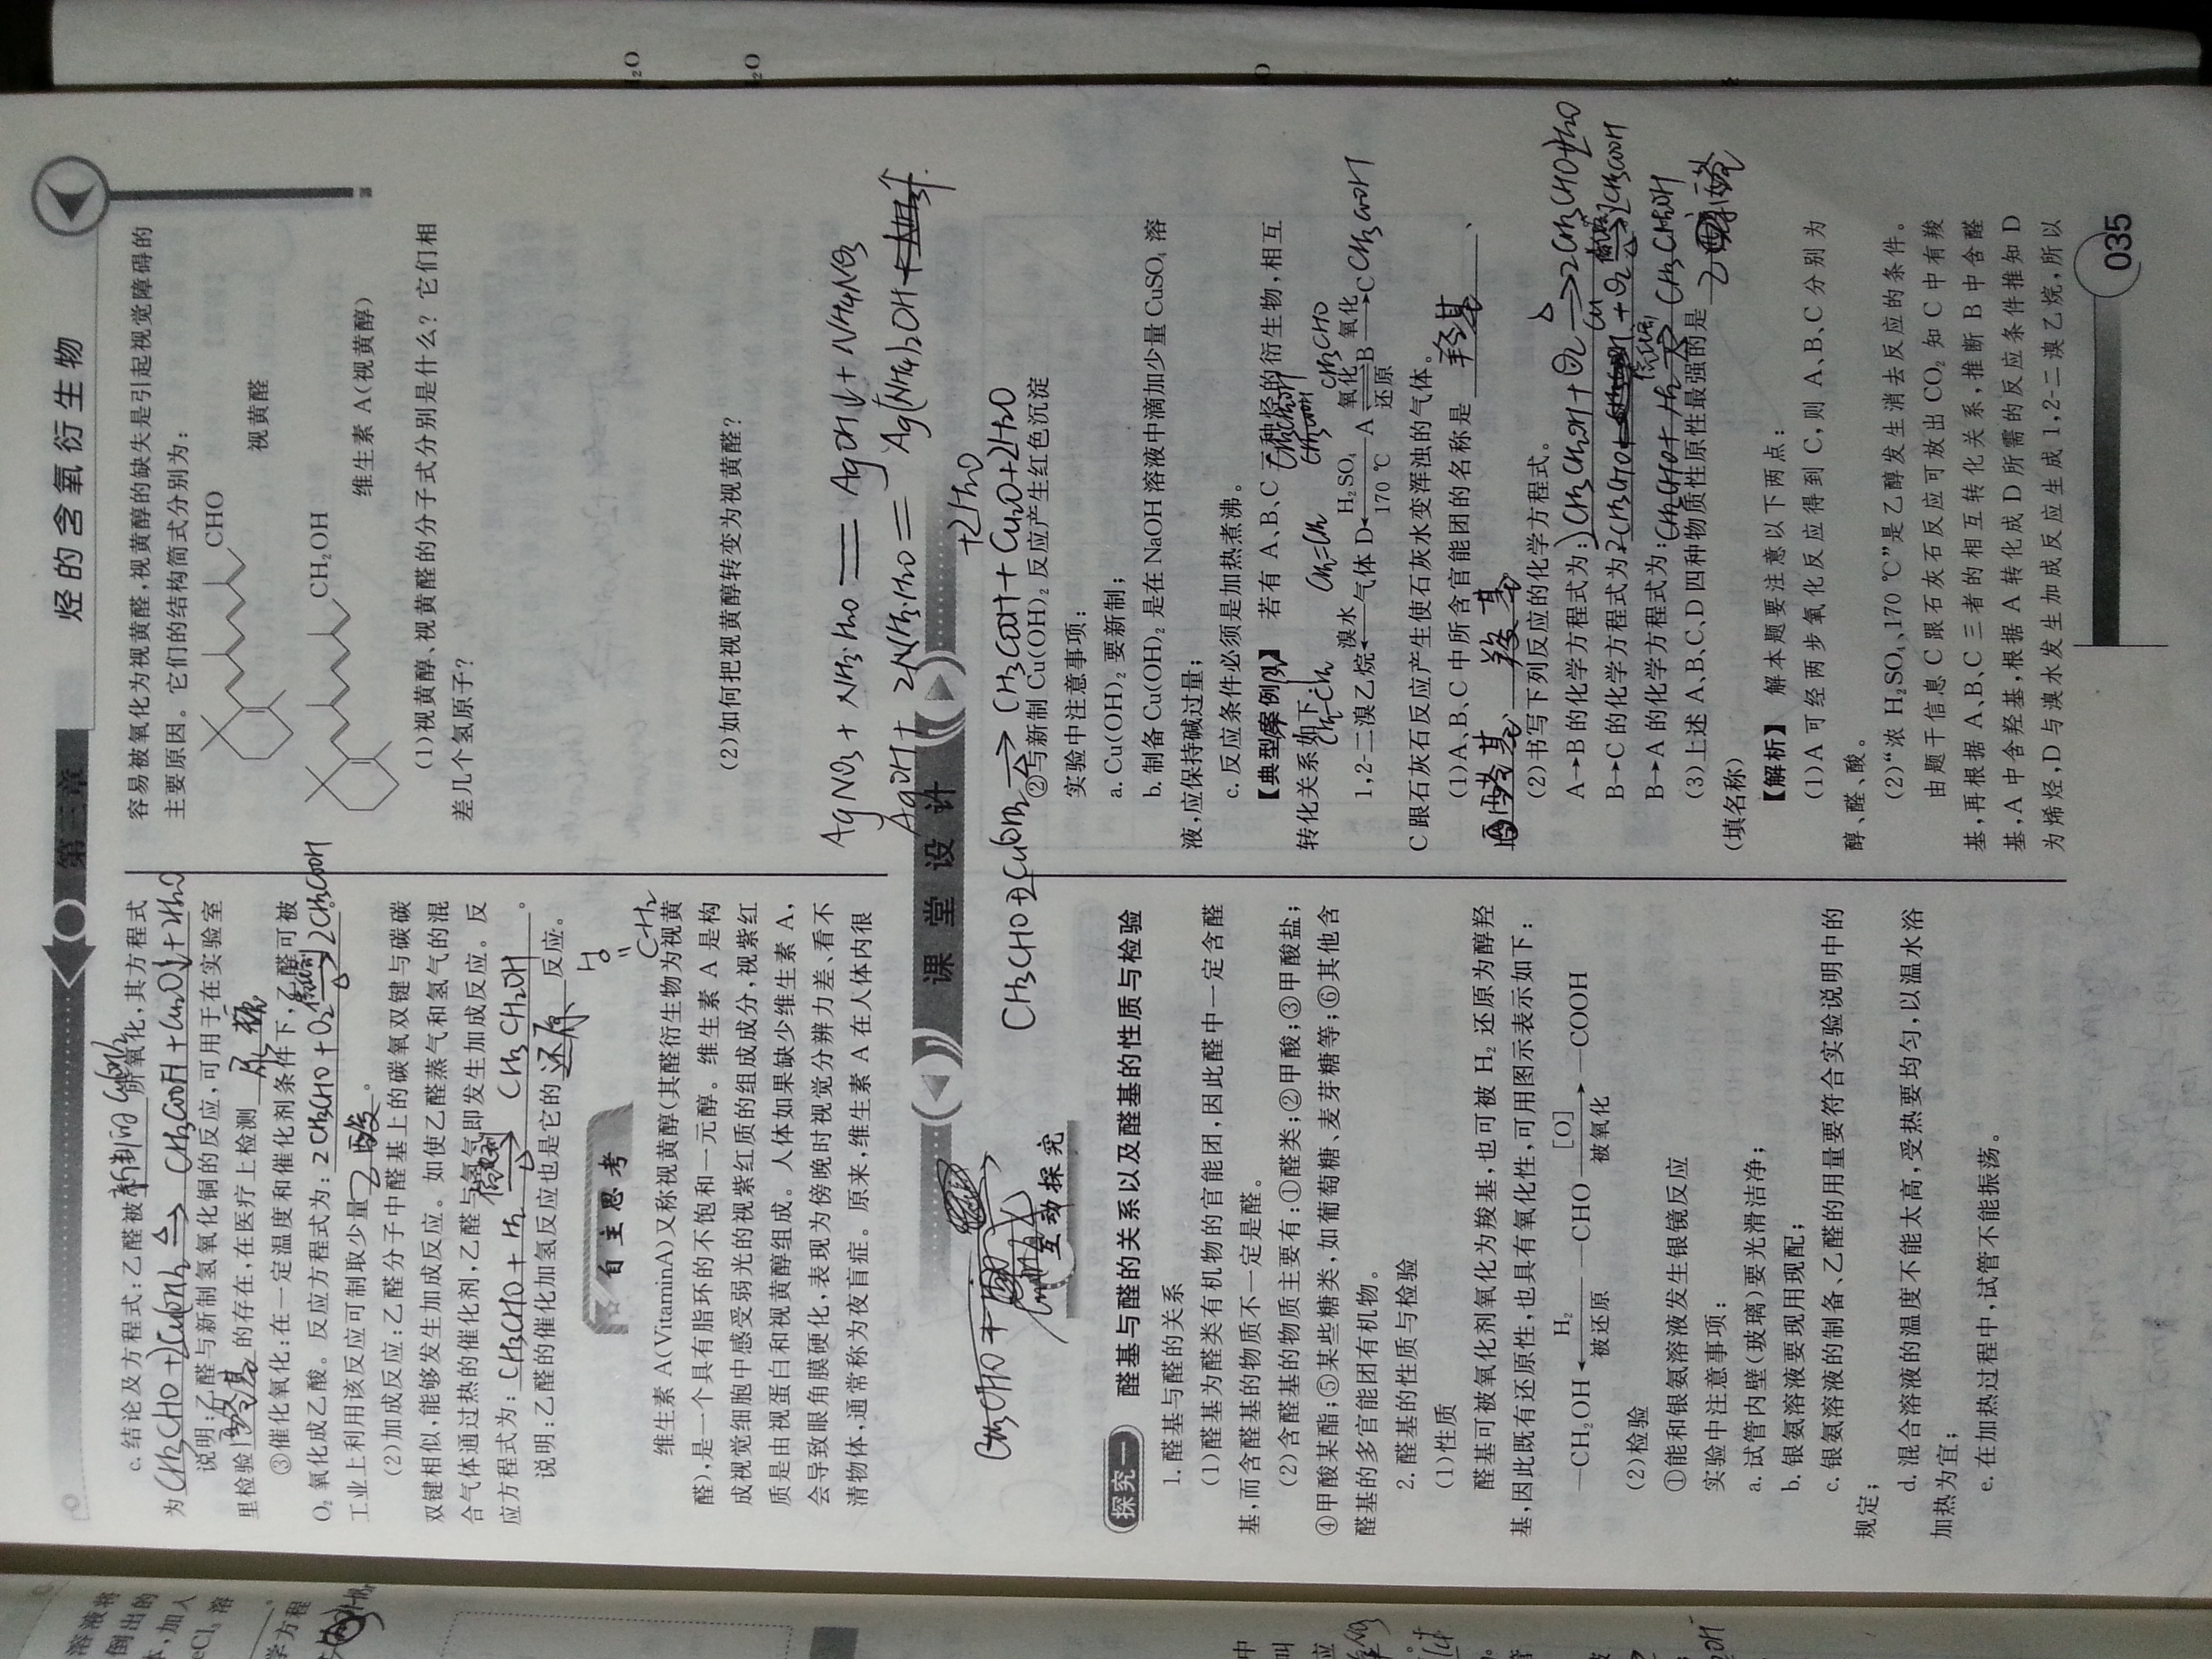 第三章
烃的含氧衍生物
溶液将
倒出的
加入
溶
学方程
c.结论及方程式:乙醛被新制的Cu(OH)₂所氧化,其方程式
为CH₃CHO+2Cu(OH)₂ △→ CH₃COOH+Cu₂O↓+2H₂O
说明:乙醛与新制氢氧化铜的反应,可用于在实验室
里检验醛基的存在,在医疗上检测尿糖
③催化氧化:在一定温度和催化剂条件下,乙醛可被
O₂氧化成乙酸。反应方程式为:2CH₃CHO+O₂ 催化剂→△ 2CH₃COOH
工业上利用该反应可制取少量乙酸。
(2)加成反应:乙醛分子中醛基上的碳氧双键与碳碳
双键相似,能够发生加成反应。如使乙醛蒸气和氢气的混
合气体通过热的催化剂,乙醛与氢气即发生加成反应。反
应方程式为:CH₃CHO+H₂ 催化剂→△ CH₃CH₂OH。
说明:乙醛的催化加氢反应也是它的还原反应。
自主思考
维生素A(VitaminA)又称视黄醇(其醛衍生物为视黄
醛),是一个具有脂环的不饱和一元醇。维生素A是构
成视觉细胞中感受弱光的视紫红质的组成成分,视紫红
质是由视蛋白和视黄醇组成。人体如果缺少维生素A,
会导致眼角膜硬化,表现为傍晚时视觉分辨力差、看不
清物体,通常称为夜盲症。原来,维生素A在人体内很
容易被氧化为视黄醛,视黄醇的缺失是引起视觉障碍的
主要原因。它们的结构简式分别为:
CHO
视黄醛
CH₂OH
维生素A(视黄醇)
(1)视黄醇、视黄醛的分子式分别是什么?它们相
差几个氢原子?
(2)如何把视黄醇转变为视黄醛?
AgNO₃+NH₃·H₂O══AgOH↓+NH₄NO₃
AgOH+2NH₃·H₂O══Ag(NH₄)₂OH
+2H₂O
课堂设计
CH₃CHO+
CH₃CHO+2Cu(OH)₂→△ CH₃COOH+Cu₂O+2H₂O
互动探究
探究一 醛基与醛的关系以及醛基的性质与检验
1.醛基与醛的关系
(1)醛基为醛类有机物的官能团,因此醛中一定含醛
基,而含醛基的物质不一定是醛。
(2)含醛基的物质主要有:①醛类;②甲酸;③甲酸盐;
④甲酸某酯;⑤某些糖类,如葡萄糖、麦芽糖等;⑥其他含
醛基的多官能团有机物。
2.醛基的性质与检验
(1)性质
醛基可被氧化剂氧化为羧基,也可被H₂还原为醇羟
基,因此既有还原性,也具有氧化性,可用图示表示如下:
—CH₂OH ←H₂ 被还原 —CHO [O]→被氧化 —COOH
(2)检验
①能和银氨溶液发生银镜反应
实验中注意事项:
a.试管内壁(玻璃)要光滑洁净;
b.银氨溶液要现用现配;
c.银氨溶液的制备、乙醛的用量要符合实验说明中的
规定;
d.混合溶液的温度不能太高,受热要均匀,以温水浴
加热为宜;
e.在加热过程中,试管不能振荡。
②与新制Cu(OH)₂反应产生红色沉淀
实验中注意事项:
a.Cu(OH)₂要新制;
b.制备Cu(OH)₂是在NaOH溶液中滴加少量CuSO₄溶
液,应保持碱过量;
c.反应条件必须是加热煮沸。
【典型案例1】 若有A、B、C三种烃的衍生物,相互
转化关系如下:
CH₂-CH₂ CH₂=CH₂ CH₃CH₂OH CH₃COOH CH₃CHO
1,2-二溴乙烷←溴水 气体D←H₂SO₄ 170℃ A 氧化⇌还原 B 氧化→C CH₃COOH
C跟石灰石反应产生使石灰水变浑浊的气体。
(1)A、B、C中所含官能团的名称是羟基、
醛基、羧基。
(2)书写下列反应的化学方程式。
A→B的化学方程式为:2CH₃CH₂OH+O₂ △→Cu 2CH₃CHO+2H₂O
B→C的化学方程式为:2CH₃CHO+O₂ 催化剂→△ 2CH₃COOH
B→A的化学方程式为:CH₃CHO+H₂ 催化剂→△ CH₃CH₂OH
(3)上述A、B、C、D四种物质性原性最强的是乙醛
(填名称)
【解析】 解本题要注意以下两点:
(1)A可经两步氧化反应得到C,则A、B、C分别为
醇、醛、酸。
(2)“浓H₂SO₄、170℃”是乙醇发生消去反应的条件。
由题干信息C跟石灰石反应可放出CO₂知C中有羧
基,再根据A、B、C三者的相互转化关系,推断B中含醛
基,A中含羟基,根据A转化成D所需的反应条件推知D
为烯烃,D与溴水发生加成反应生成1,2-二溴乙烷,所以
035